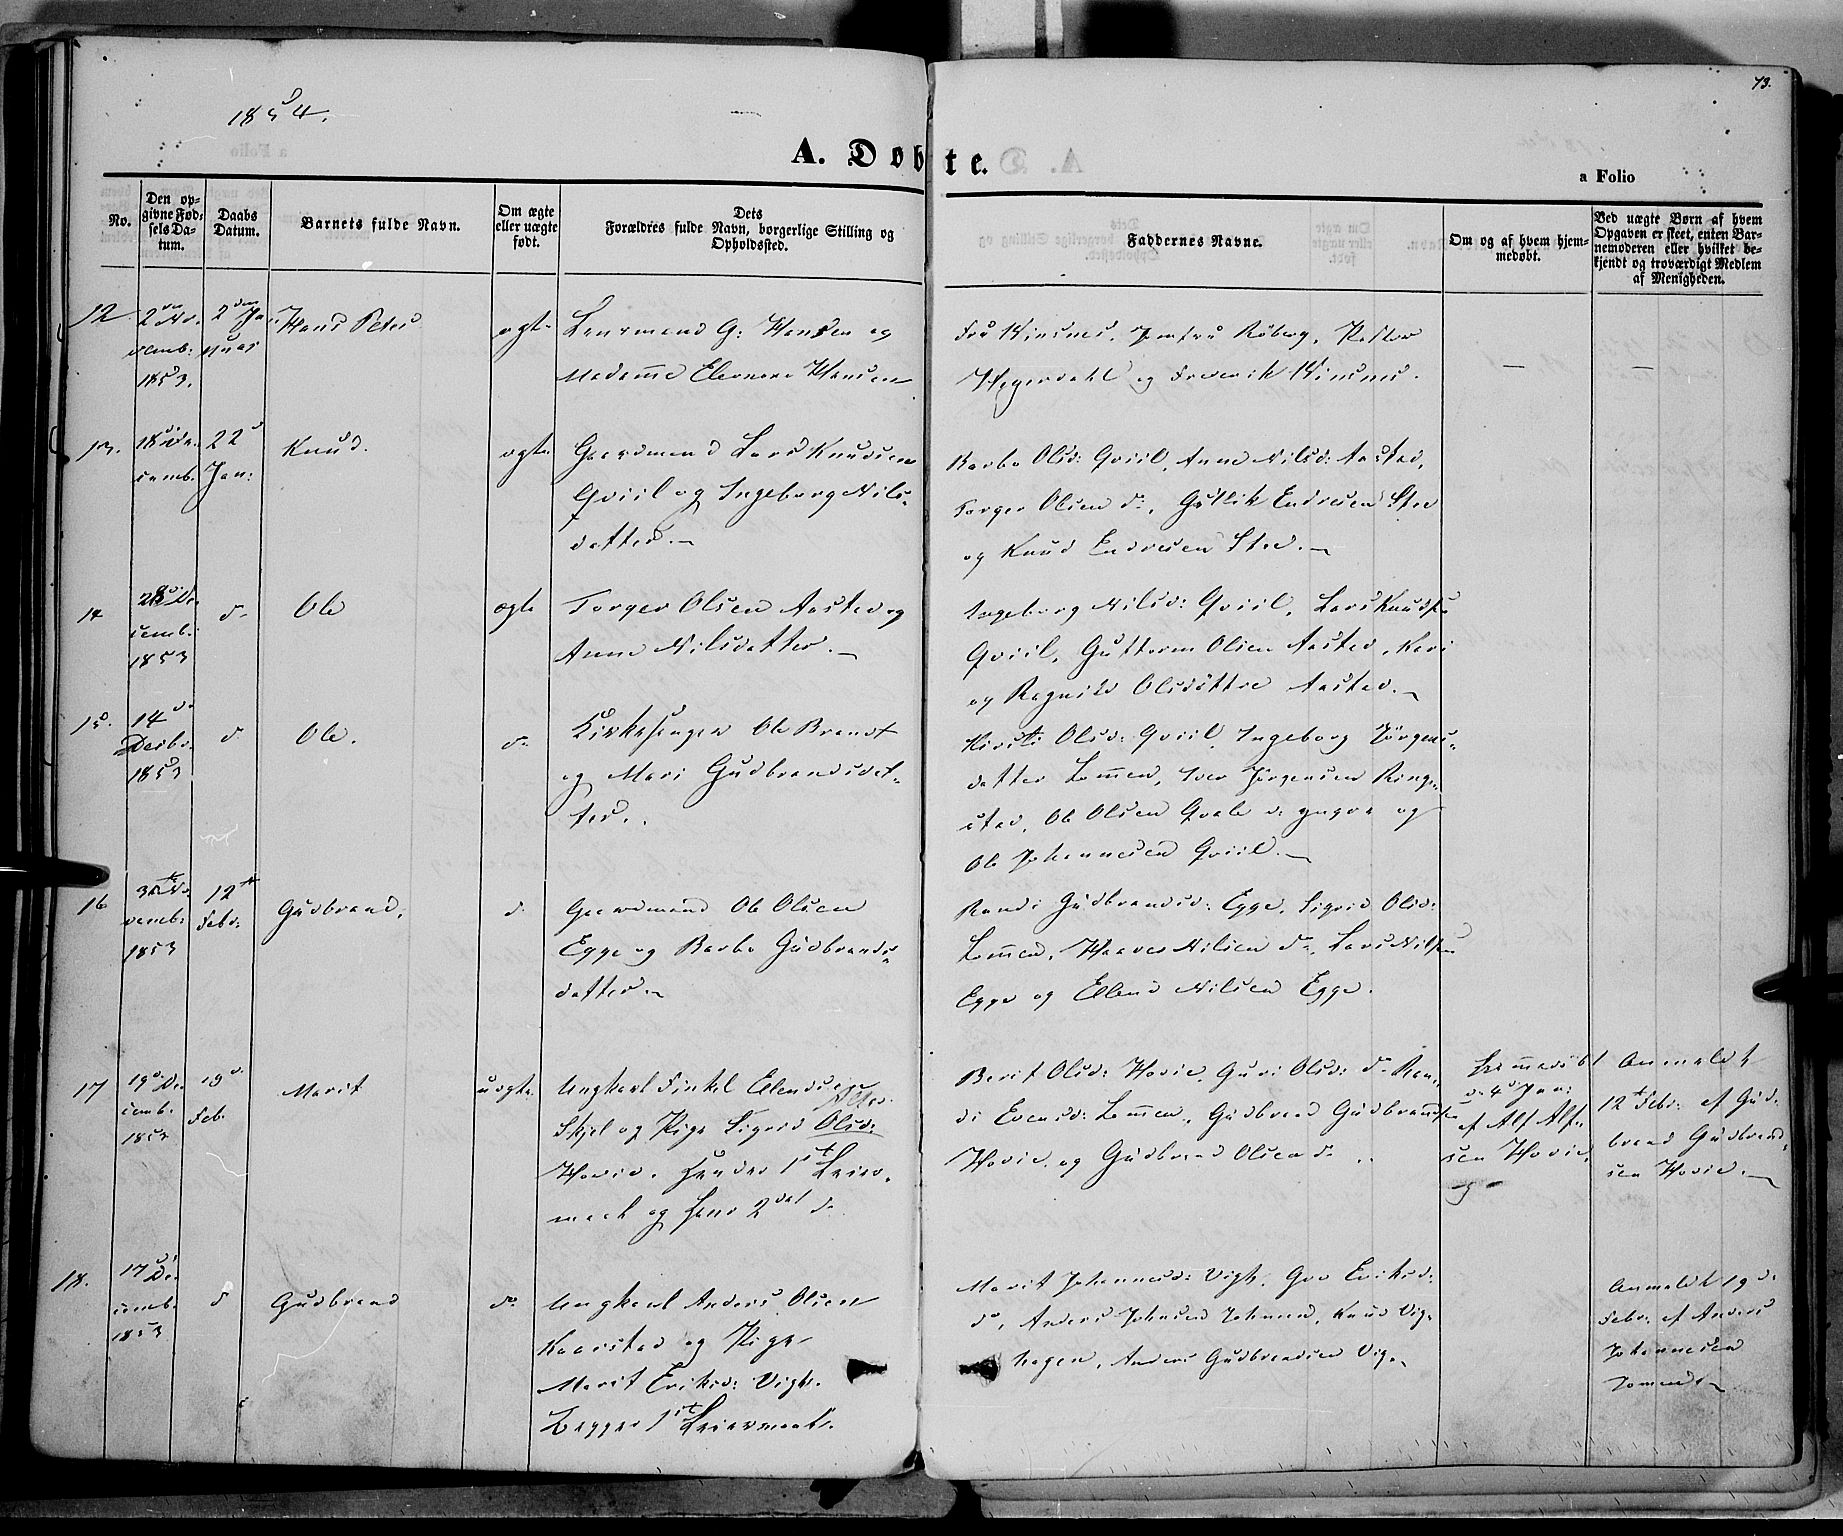 73.
1854.
A. Døbte.
a Folio
No.
Den op-
givne Fød-
sels Da-
tum.
Daabs
Datum.
Barnets fulde Navn.
Om ægte
eller uægte
født.
Dets
Forældres fulde Navn, borgerlige Stilling og
Opholdssted.
Faddernes Navne.
Om og af hvem hjem-
medøbt.
Ved uægte Børn af hvem
Opgaven er skeet, enten Bar-
nemoderen eller hvilket be-
kjendt og troværdigt Medlem
af Menigheden.
12
2den No-
vemb:
1853.
2den Ja-
nuar
Hans Peter
ægte
Lensmand G: Hansen og
Madame Eleonora Hansen
Fru Hinsnes, Jomfru Roberg, Pastor
Hegerdahl og Frederik Hinsnes.
—
—
13.
18de De-
cemb.
22d
Jan:
Knud.
ægte
Gaardmand Lars Knudsen
Qviil og Ingeborg Nils-
datter.
Barbo Olsd: Qviil, Anne Nilsd: Aastad,
Torger Olsen do, Gullik Endresen Sted
og Knud Endresen Sted.
14
28de De-
cemb:
1853
do
Ole
ægte
Torger Olsen Aastad og
Anne Nilsdatter.
Ingeborg Nilsd: Qviil, Lars Knuds:
Qviil, Guttorm Olsen Aastad, Kari
og Ragnild Olsdøttre Aastad.
15.
14d
Decbr.
1853
d
Ole.
do
Kirkesanger Ole Brandt
og Mari Gudbrandsdat-
ter.
Kirsti Olsd: Qviil, Ingeborg Jørgens-
datter Lommen, Iver Jørgensen Ringe-
stad, Ole Olsen Qvale d: yngre og
Ole Johannesen Qviil.
16
No-
vemb:
1853
12te
Febr:
Gudbrand.
d.
Gaardmand Ole Olsen
Egge og Barbo Gudbrands-
datter.
Randi Gudbrandsd: Egge, Sigrid Olsd:
Lommen, Haaver Nilsen do, Lars Nilsen
Egge og Ellend Nilsen Egge.
17
19de De-
cemb.
1853
19d.
Feb.
Marit
uægte
Ungkarl Finkel Ellends:
Skjel og Pige Sigrid Olsd:
Alfsd.
Hovie. Hendes 1ste Leier-
maal og hans 2det do
Berit Olsd: Hovie, Guri Olsd: do Ran-
di Evensd: Lommen, Gudbrand Gudbrandsen
Hovie, og Gudbrand Olsen do
Hjemmedøbt
d. 4d Jan:
af Alf Alf-
sen Hovie.
Anmeldt
12te Febr: af Gud-
brand Gudbrand-
sen Hovie.
18.
17de
De-
cemb.
1853
d
Gudbrand
do
Ungkarl Anders Olsen
Kaarstad og Pige
Marit Eriksd: Vigh.
Begges 1ste Leiermaal.
Marit Johannesd: Vigh, Gro Eriksd:
do, Anders Johnsen Johmen, Knud Vig-
hagen, Anders Gudbrandsen Vig.
Anmeldt 19d.
Febr. af Anders
Johannesen